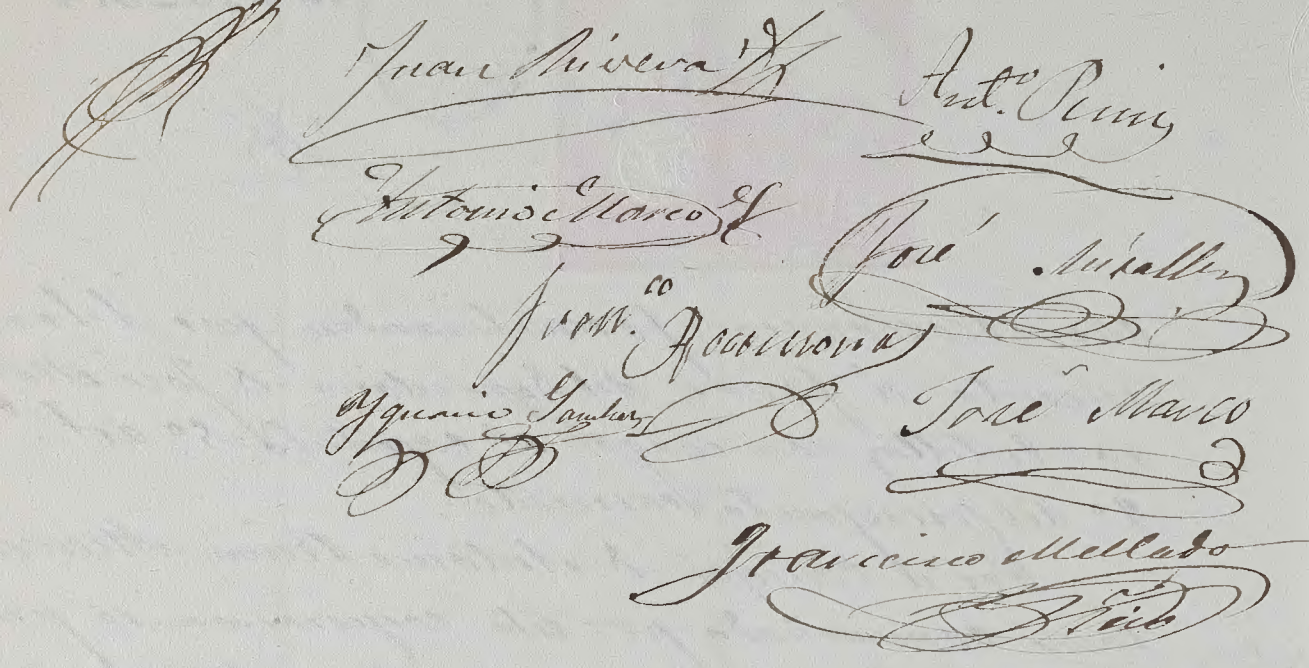 Juan Rivera
Ant.º
Antonio Marco
José Miralles
Fran.co Rocamora
Ygnacio
José Marco
Francisco Mellado
Srio